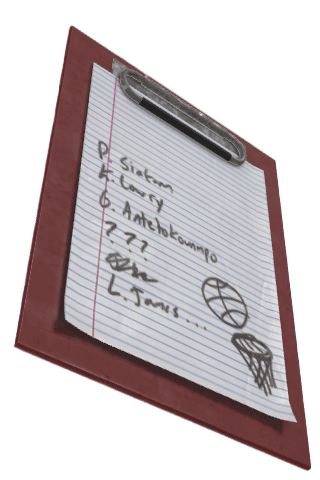 P. Siakam
K. Lowry
G. Antetokounmpo
???
L. James....